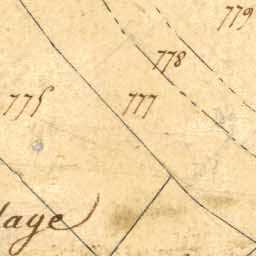 779
778
775
777
lage